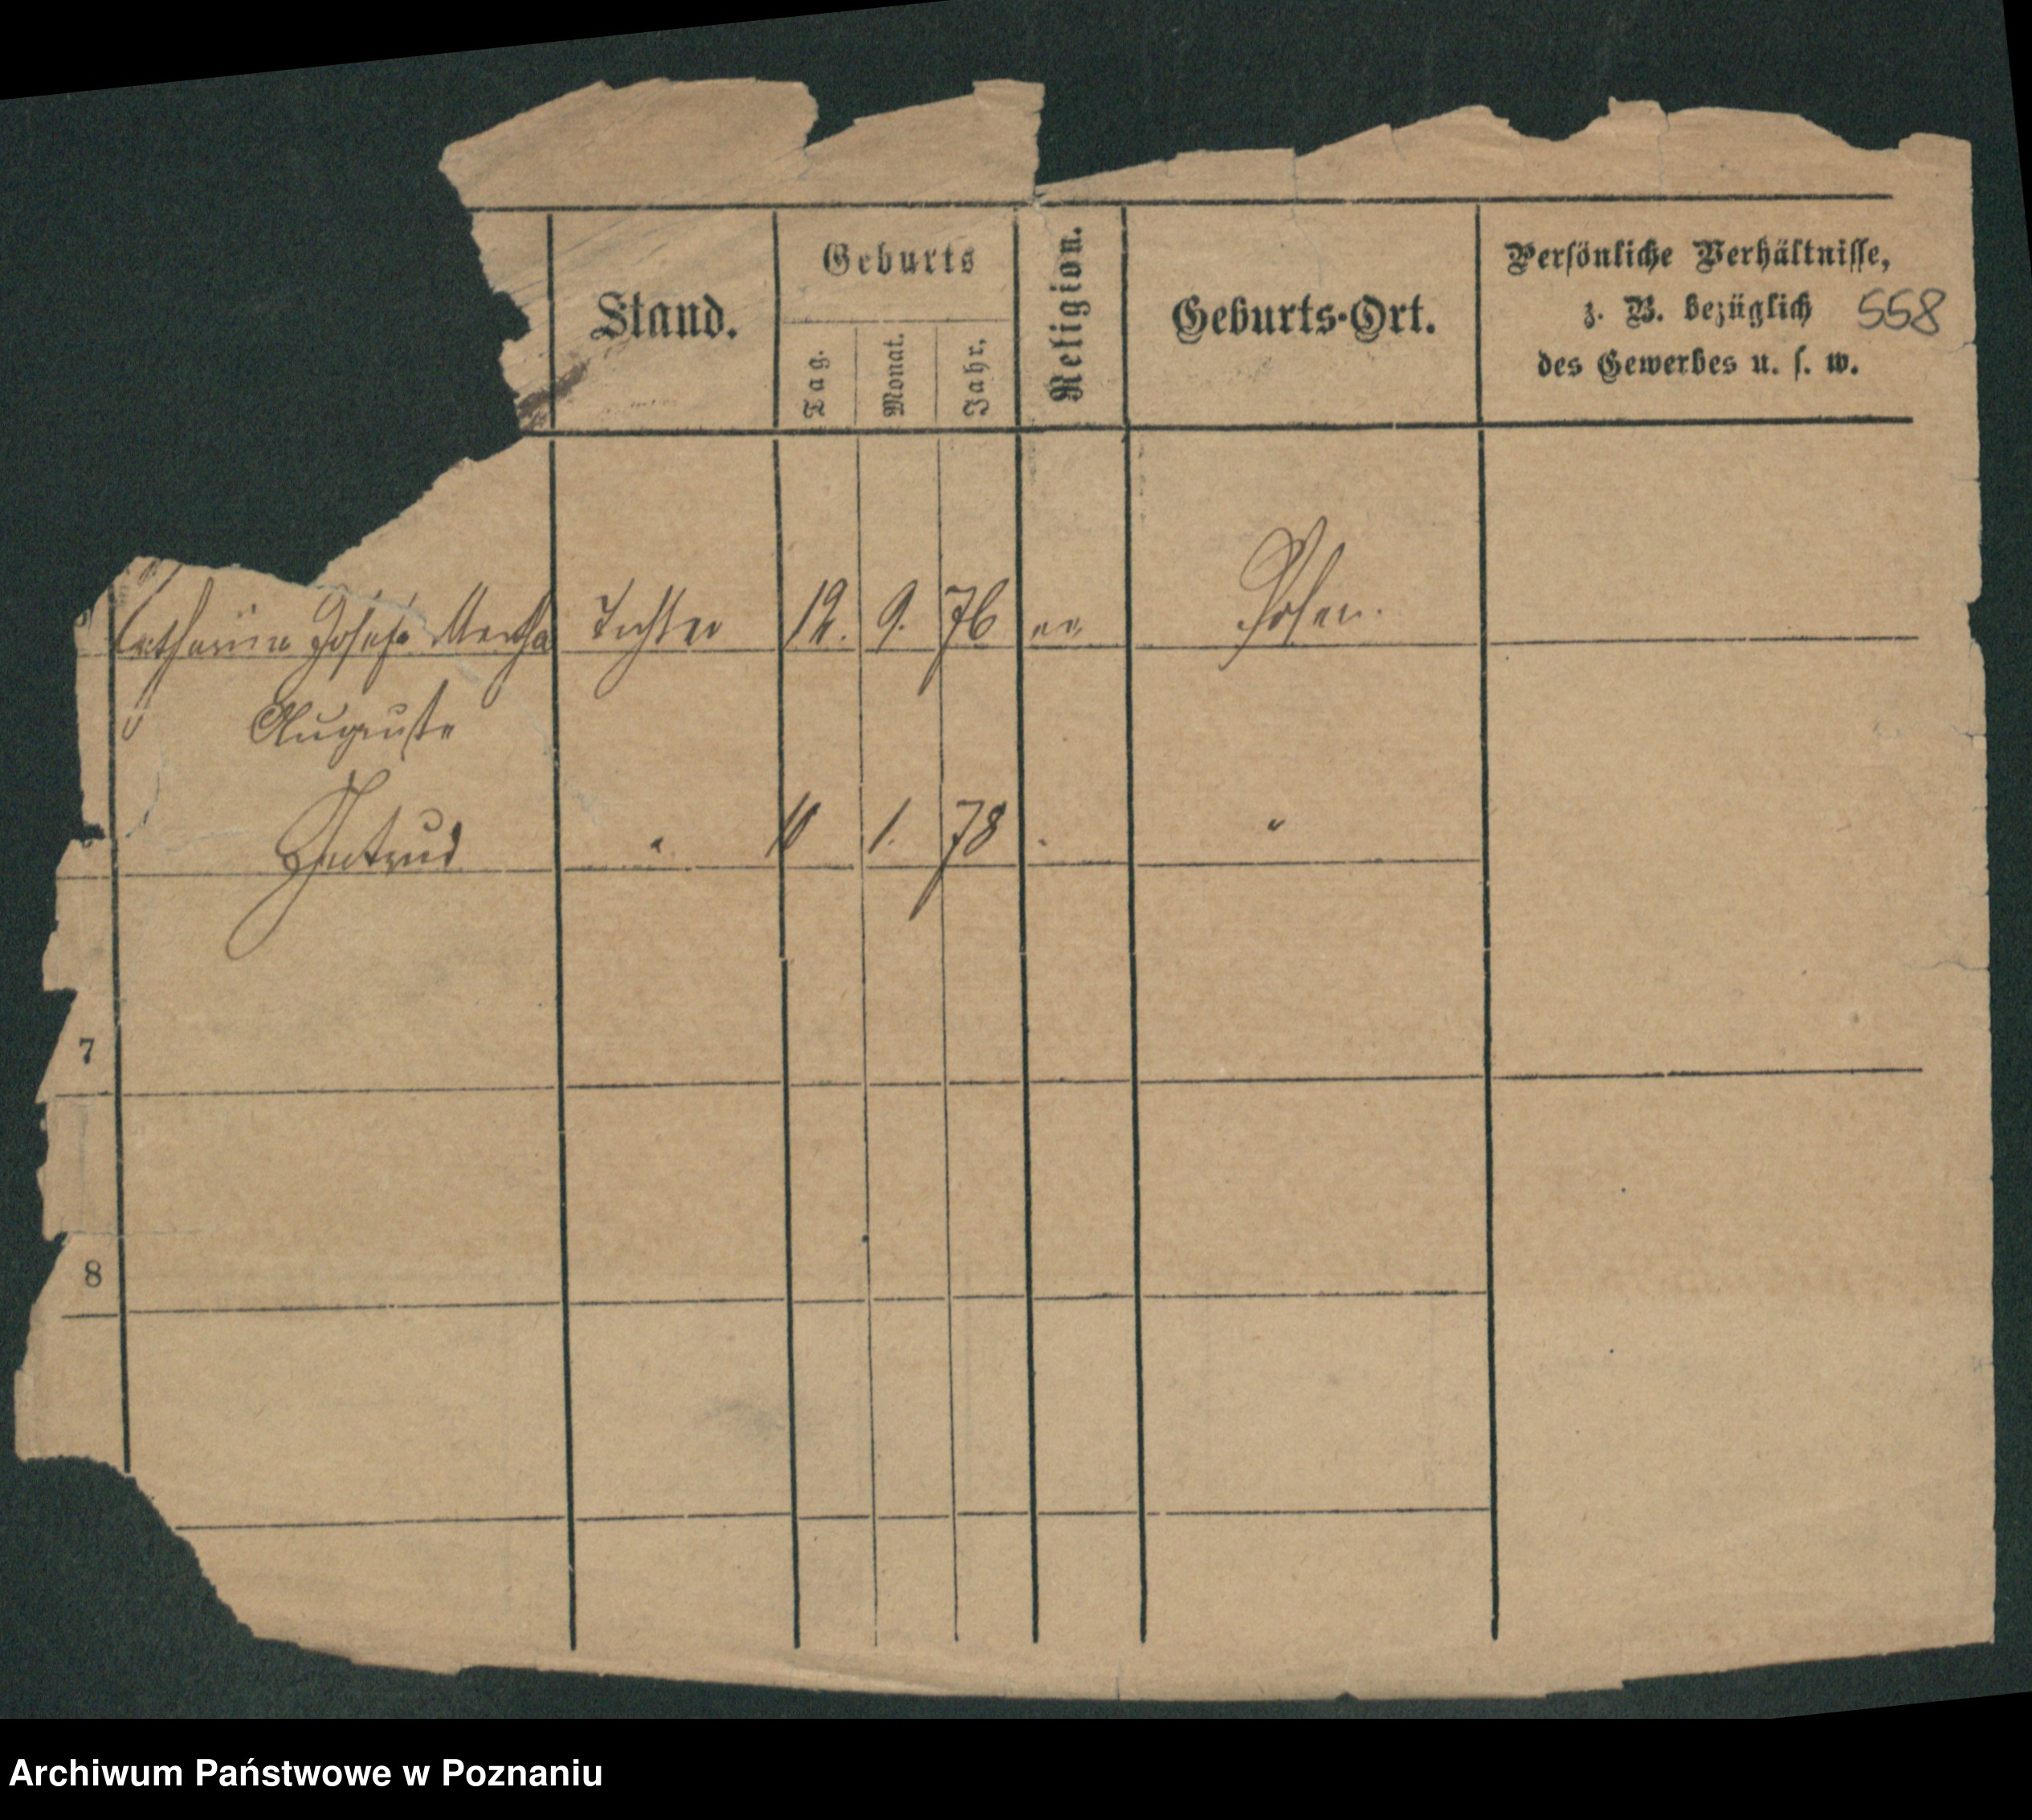 Stand.
Geburts
Tag.
Monat.
Jahr.
Religion.
Geburts-Ort.
Persönliche Verhältnisse,
z. B. bezüglich
des Gewerbes u. s. w.
558
Catharina Josefa Martha Tochter 12. 9. 76 ev. Posen.
Auguste
Gertrud " 10 1. 78 "
7
8
Archiwum Państwowe w Poznaniu